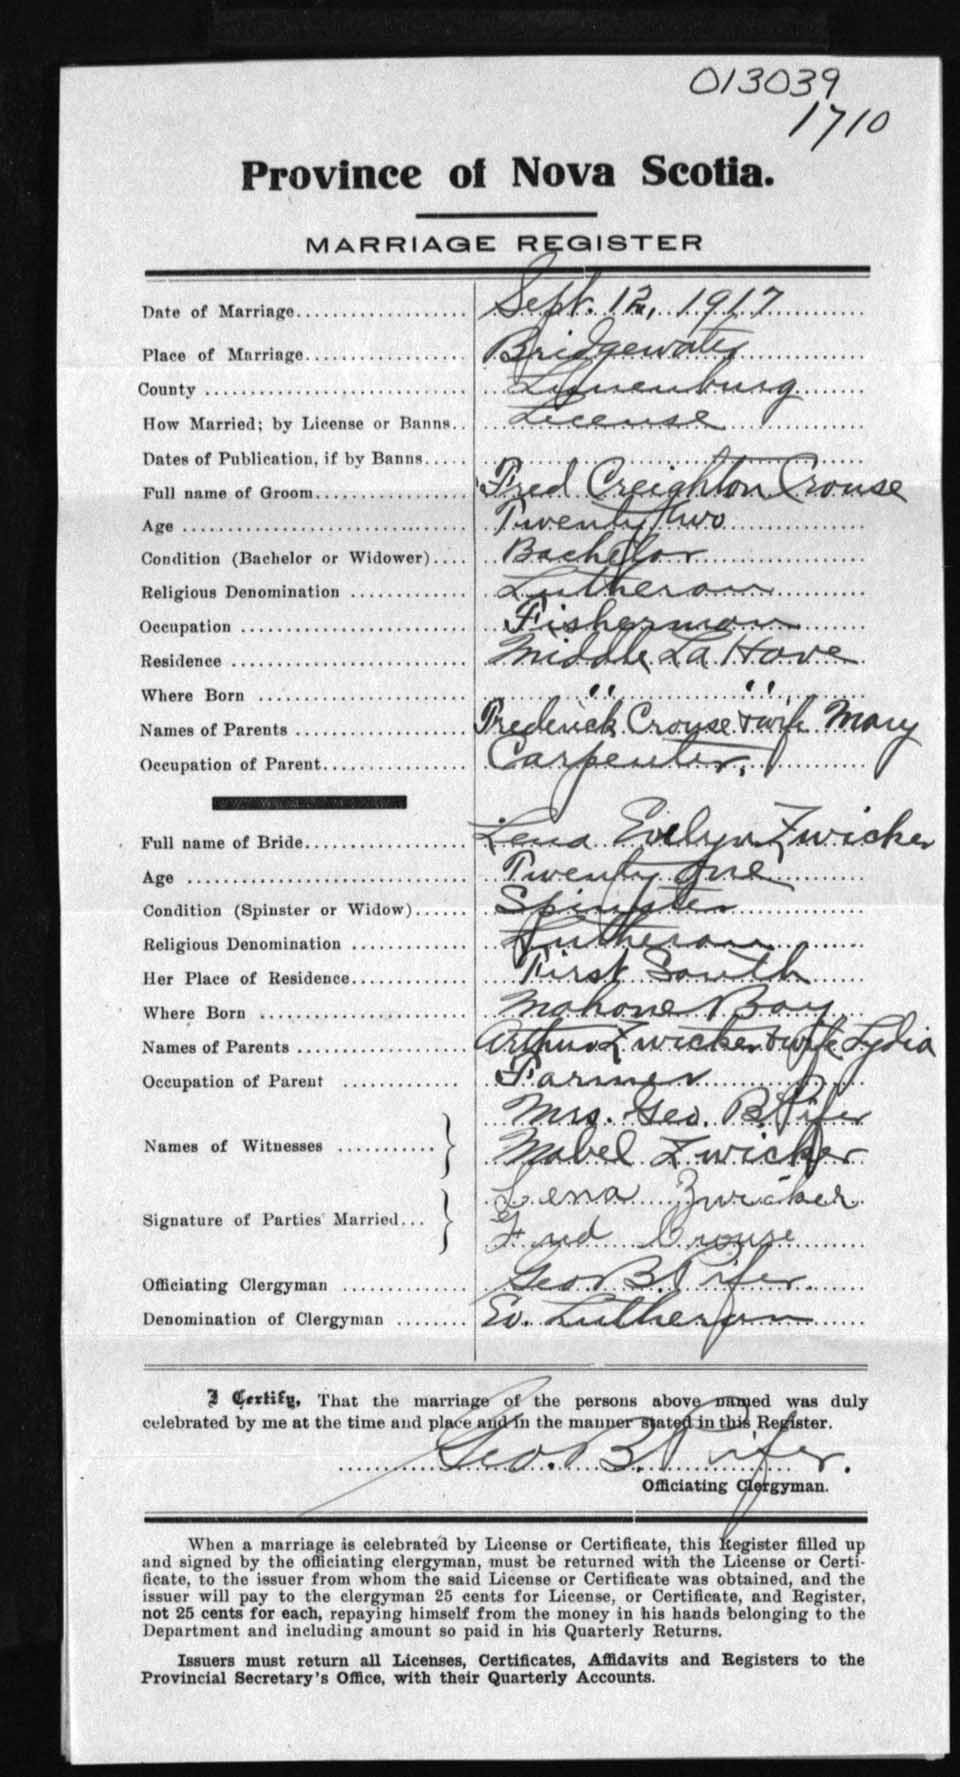 013039
1710
Province of Nova Scotia.
MARRIAGE REGISTER
Date of Marriage.................... Sept. 12, 1917
Place of Marriage.................. Bridgewater
County ............................ Lunenburg
How Married; by License or Banns.. License
Dates of Publication, if by Banns.....
Full name of Groom................ Fred Creighton Crouse
Age .............................. Twenty two
Condition (Bachelor or Widower).... Bachelor
Religious Denomination ............ Lutheran
Occupation ....................... Fisherman
Residence ........................ Middle La Have
Where Born ....................... " "
Names of Parents .................. Frederick Crouse & wife Mary
Occupation of Parent................ Carpenter.
Full name of Bride.................. Lena Evelyn Zwicker
Age .............................. Twenty One
Condition (Spinster or Widow)...... Spinster
Religious Denomination ............ Lutheran
Her Place of Residence............. First South
Where Born ....................... Mahone Bay
Names of Parents .................. Arthur Zwicker & wife Lydia
Occupation of Parent ............. Farmer
Mrs. Geo. B. Pifer
Names of Witnesses ........... } Mabel Zwicker
Lena Zwicker
Signature of Parties Married... } Fred Crouse
Officiating Clergyman ............. Geo B. Pifer
Denomination of Clergyman ........ Ev. Lutheran
I Certify, That the marriage of the persons above named was duly
celebrated by me at the time and place and in the manner stated in this Register.
Geo. B. Pifer.
Officiating Clergyman.
When a marriage is celebrated by License or Certificate, this Register filled up
and signed by the officiating clergyman, must be returned with the License or Certi-
ficate, to the issuer from whom the said License or Certificate was obtained, and the
issuer will pay to the clergyman 25 cents for License, or Certificate, and Register,
not 25 cents for each, repaying himself from the money in his hands belonging to the
Department and including amount so paid in his Quarterly Returns.
Issuers must return all Licenses, Certificates, Affidavits and Registers to the
Provincial Secretary's Office, with their Quarterly Accounts.